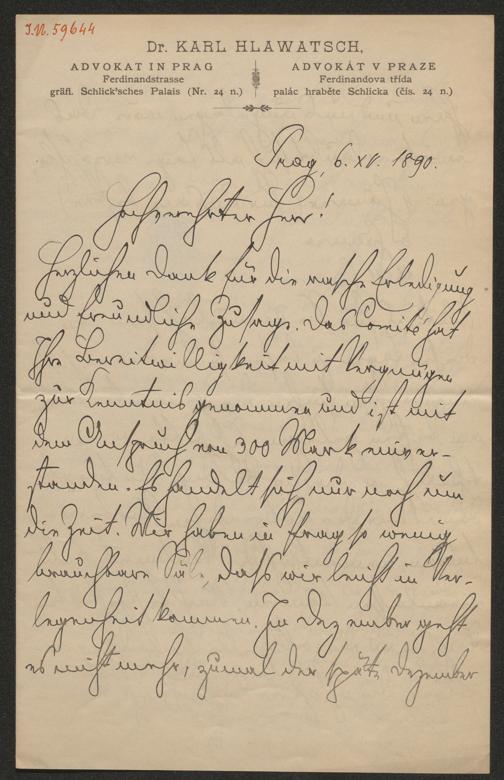 I.N. 59644
Dr. KARL HLAWATSCH,
ADVOKAT IN PRAG
Ferdinandstrasse
gräfl. Schlick'sches Palais (Nr. 24 n.)
ADVOKÁT V PRAZE
Ferdinandova třída
palác hraběte Schlicka (čís. 24 n.)
Prag, 6. XI. 1890.
Hochverehrter Herr!
Herzlichen Dank für die rasche Erledigung
und freundliche Zusage. Das Comité hat
Ihre Bereitwilligkeit mit Vergnügen
zur Kenntnis genommen und ist mit
dem Anspruch von 300 Mark einver-
standen. Es handelt sich nur noch um
die Zeit. Wir haben in Prag so wenig
brauchbare Säle, daſs wir leicht in Ver-
legenheit kommen. Im Dezember geht
es nicht mehr, zumal der späte Dezember